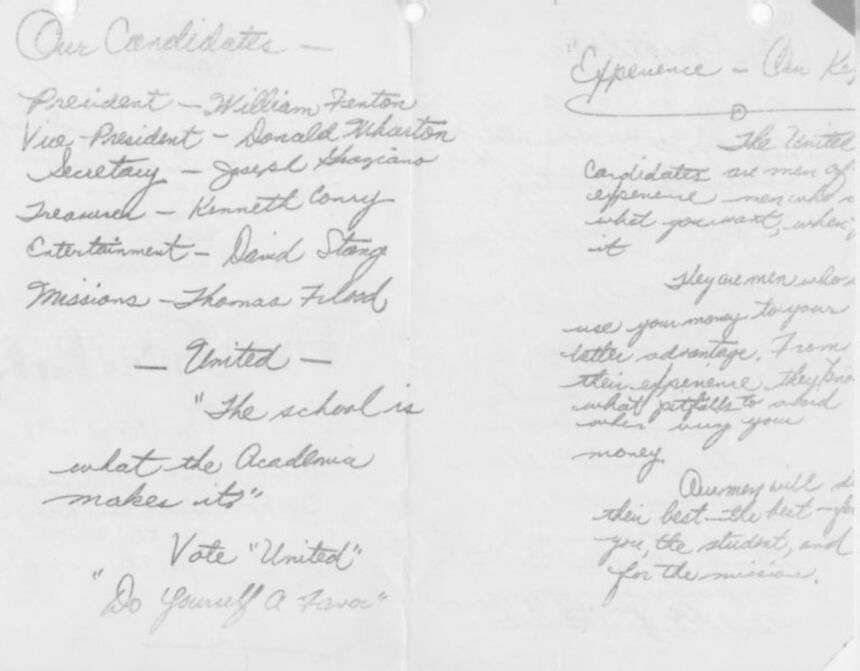 Our Candidates —
President — William Fenton
Vice-President — Donald Wharton
Secretary — Joseph Graziano
Treasurer — Kenneth Conry
Entertainment — David Stange
Missions — Thomas Flood
— United —
"The school is
what the Academia
makes it"
Vote "United"
"Do Yourself A Favor"
Experience — Our
The United
Candidates are men of
experience — men who
what you want, when
it
They are men who
use your money to your
better advantage. From
their experience they
what pitfalls to avoid
when using your
money.
Our men will
their best — the best —
you, the student, and
for the missions.